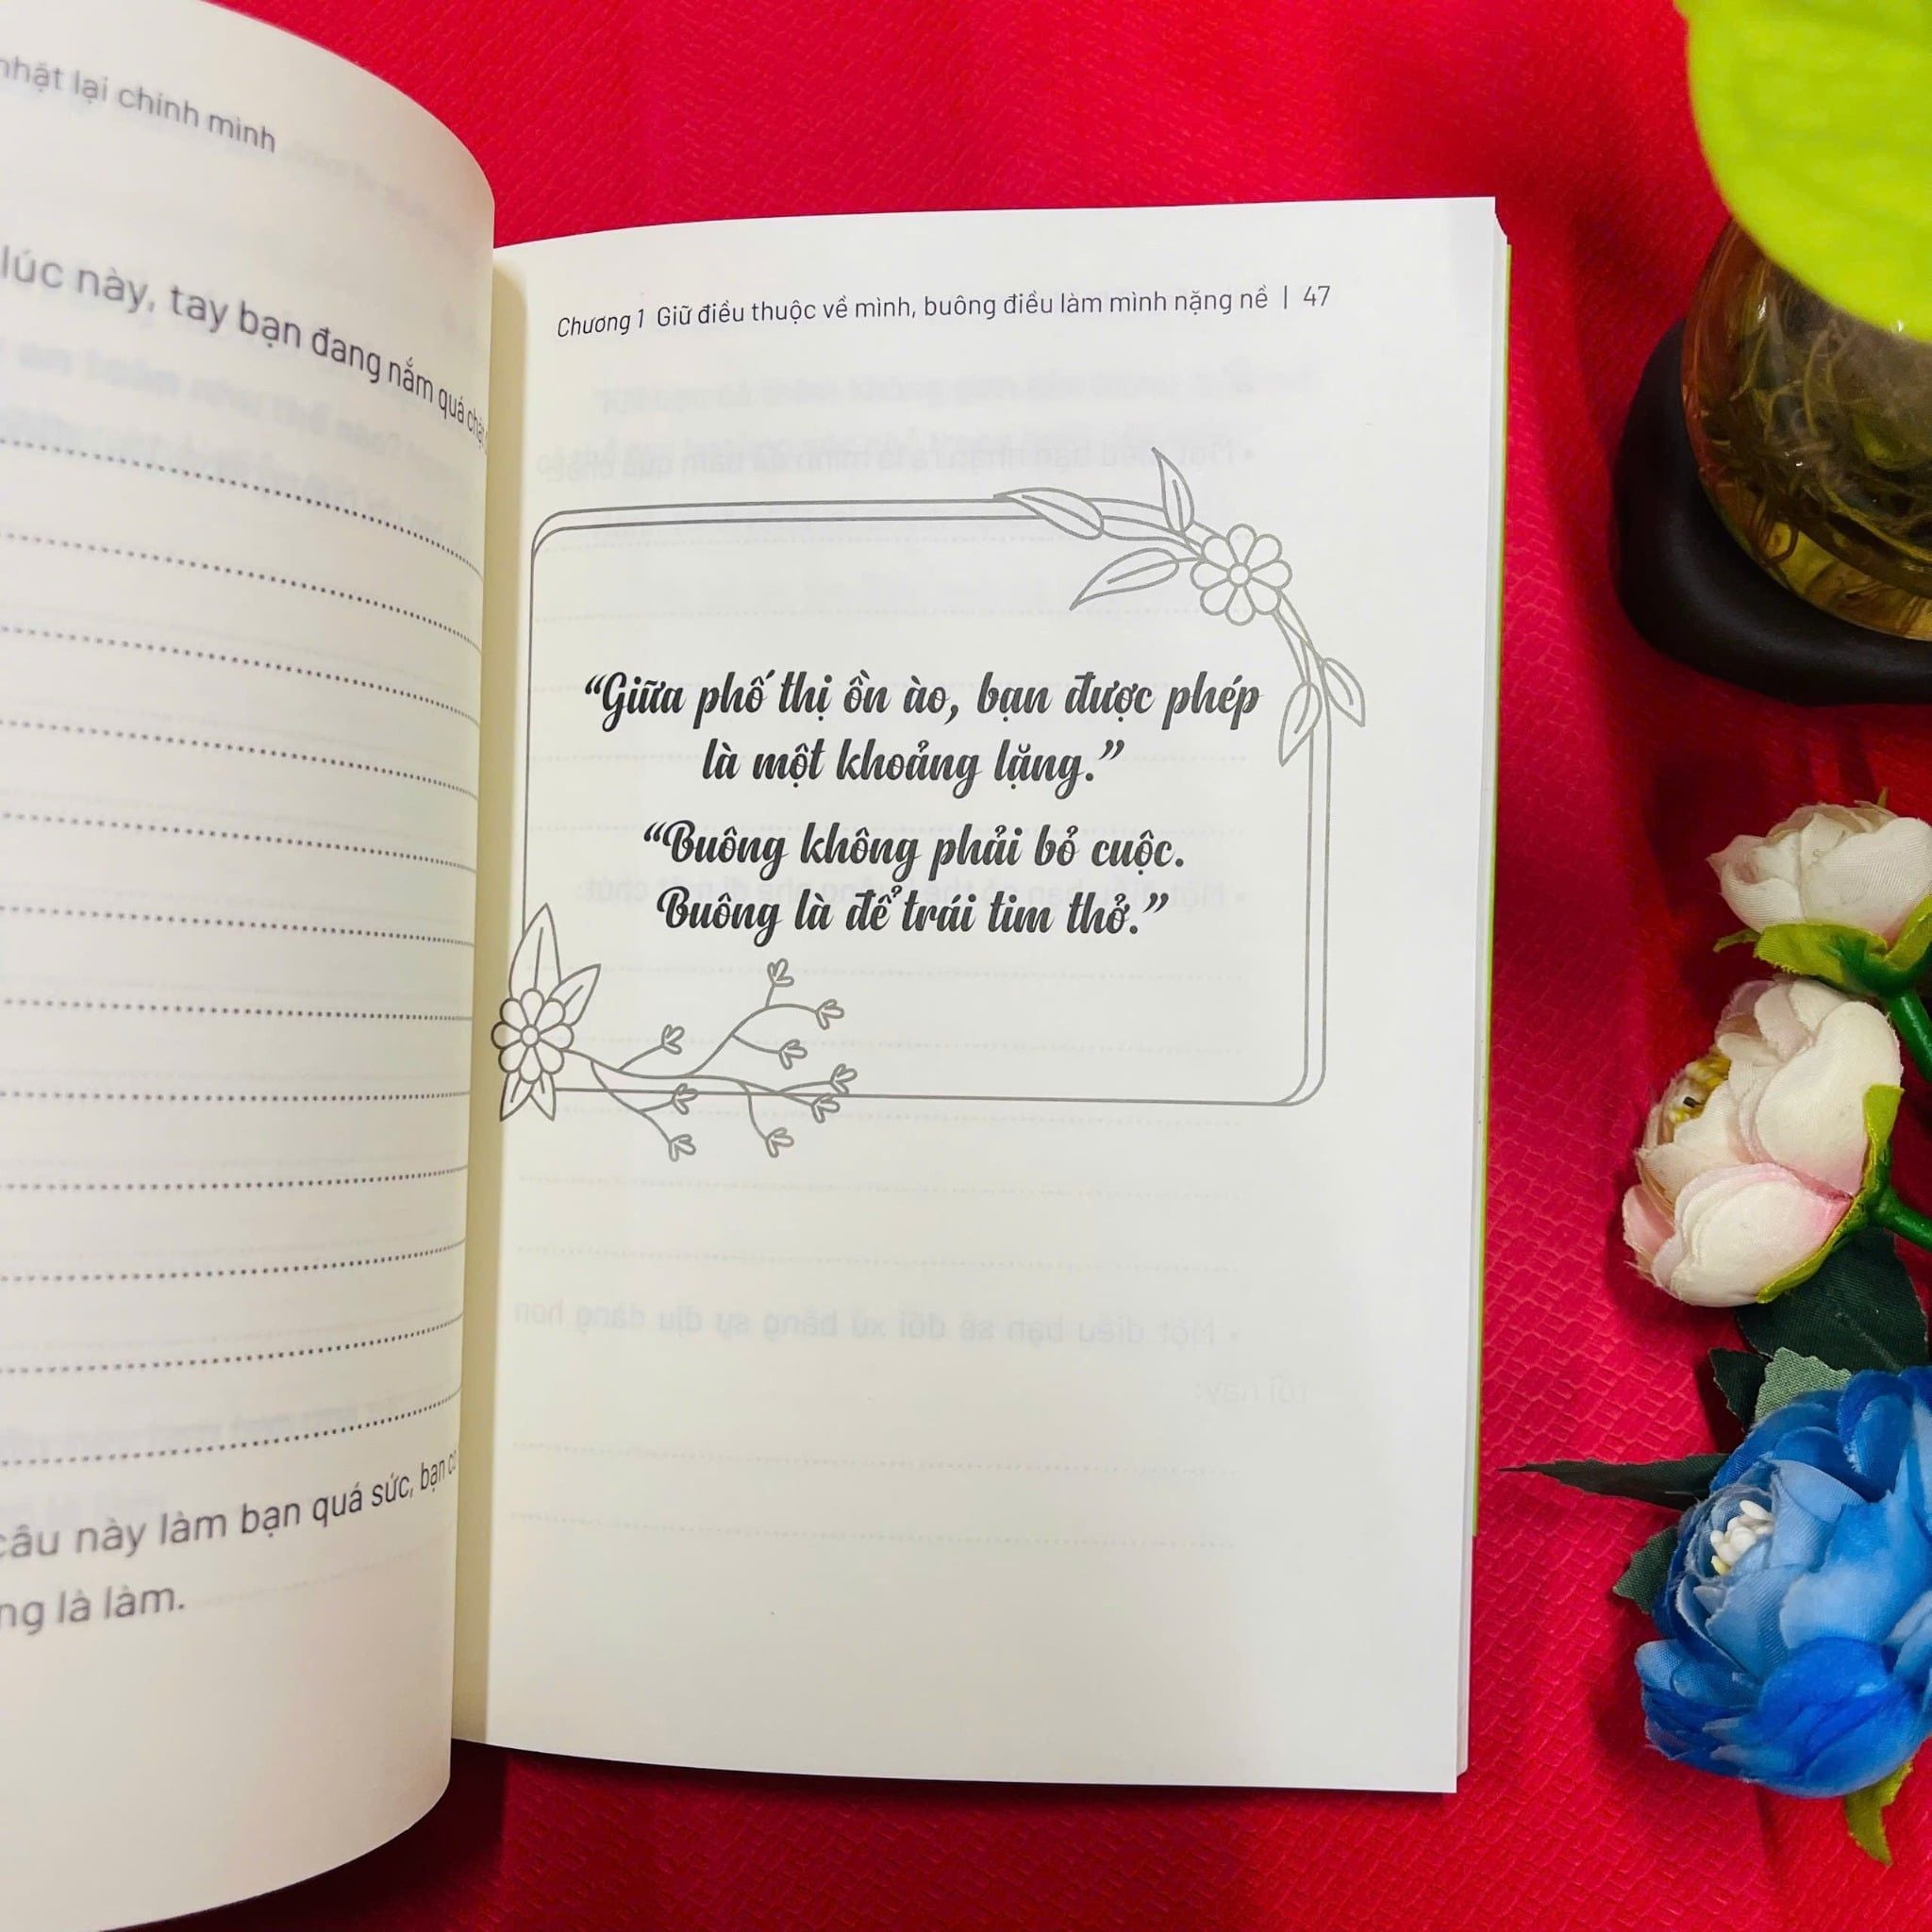 nhặt lại chính mình
lúc này, tay bạn đang nắm quá
câu này làm bạn quá sức, bạn
là làm.
Chương 1 Giữ điều thuộc về mình, buông điều làm mình nặng nề | 47
“Giữa phố thị ồn ào, bạn được phép
là một khoảng lặng.”
“Buông không phải bỏ cuộc.
Buông là để trái tim thở.”